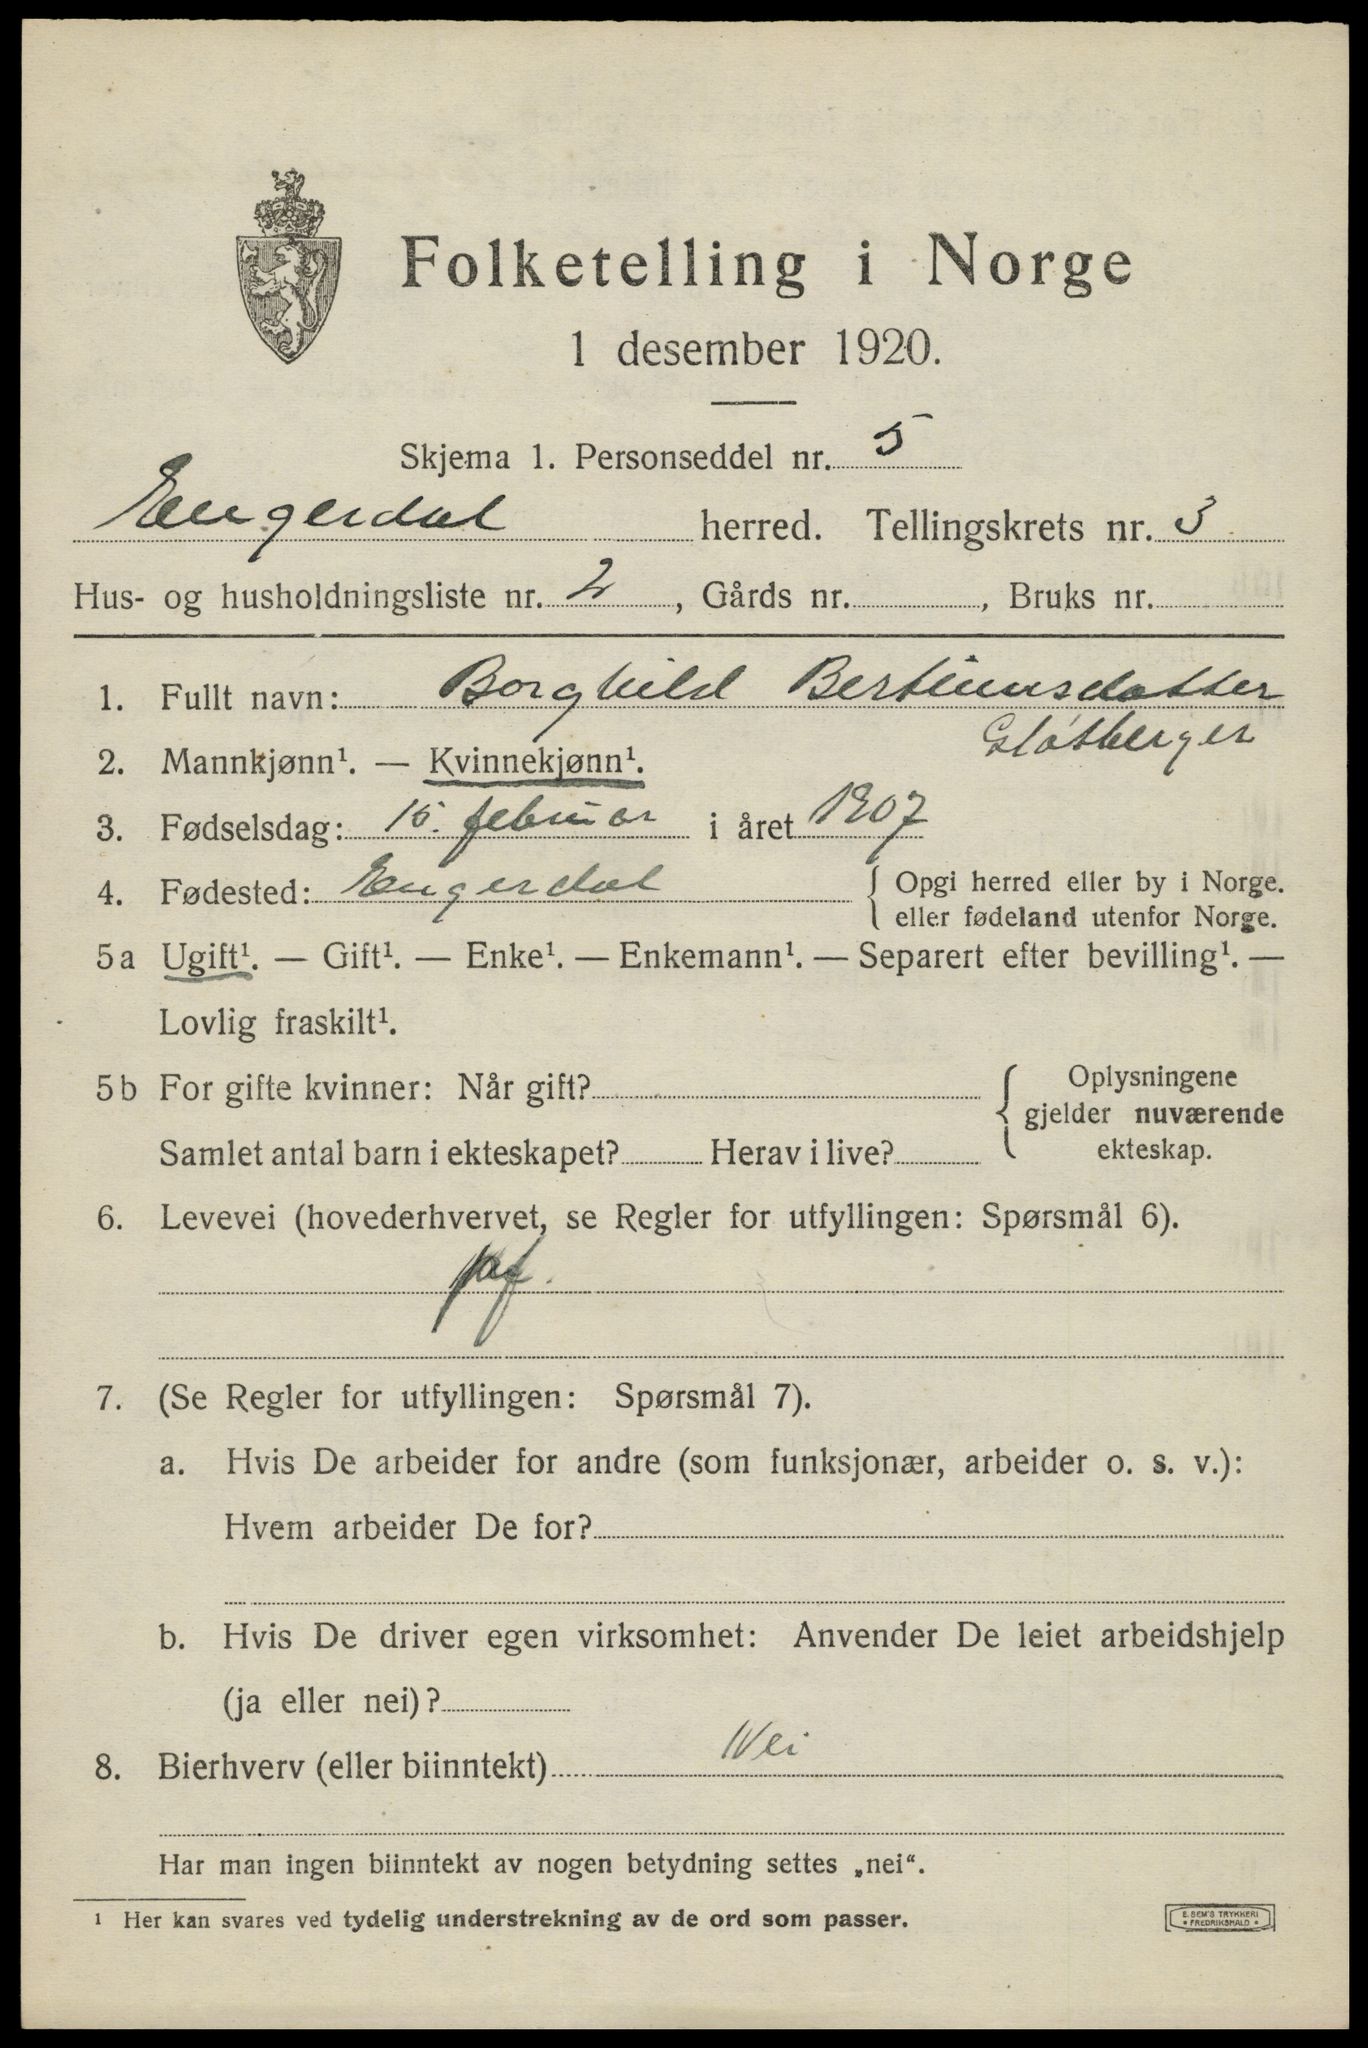 Folketelling i Norge
1 desember 1920.
Skjema 1. Personseddel nr. 5
Engerdal herred. Tellingskrets nr. 3
Hus- og husholdningsliste nr. 2, Gårds nr. , Bruks nr.
1. Fullt navn: Borghild Bertinusdatter
Gløtberget
2. Mannkjønn¹. — Kvinnekjønn¹.
3. Fødselsdag: 15. februar i året 1907
4. Fødested: Engerdal { Opgi herred eller by i Norge.
eller fødeland utenfor Norge.
5a Ugift¹. — Gift¹. — Enke¹. — Enkemann¹. — Separert efter bevilling¹. —
Lovlig fraskilt¹.
5b For gifte kvinner: Når gift? { Oplysningene
gjelder nuværende
Samlet antal barn i ekteskapet? Herav i live? ekteskap.
6. Levevei (hovederhvervet, se Regler for utfyllingen: Spørsmål 6).
7. (Se Regler for utfyllingen: Spørsmål 7).
a. Hvis De arbeider for andre (som funksjonær, arbeider o. s. v.):
Hvem arbeider De for?
b. Hvis De driver egen virksomhet: Anvender De leiet arbeidshjelp
(ja eller nei)?
8. Bierhverv (eller biinntekt) Nei
Har man ingen biinntekt av nogen betydning settes „nei“.
¹ Her kan svares ved tydelig understrekning av de ord som passer.
E. SEM'S TRYKKERI
* FREDRIKSHALD *